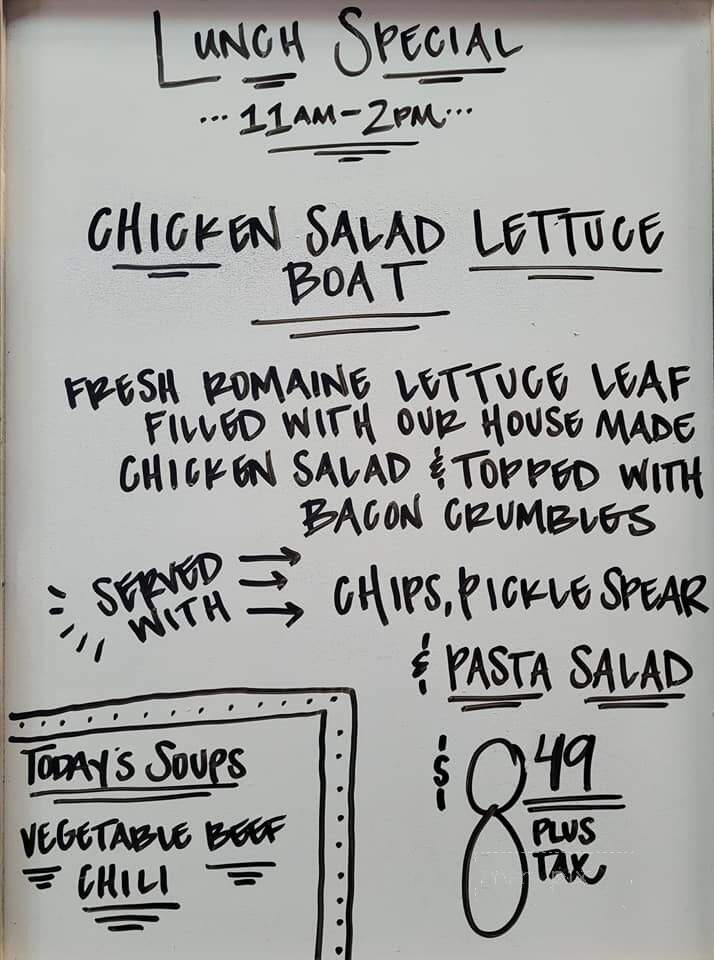 LUNCH SPECIAL
... 11AM-2PM...
CHICKEN SALAD LETTUCE
BOAT
FRESH ROMAINE LETTUCE LEAF
FILLED WITH OUR HOUSE MADE
CHICKEN SALAD & TOPPED WITH
BACON CRUMBLES
SERVED
WITH
CHIPS, PICKLE SPEAR
& PASTA SALAD
$8 49
PLUS
TAX
TODAY'S SOUPS
VEGETABLE BEEF
CHILI